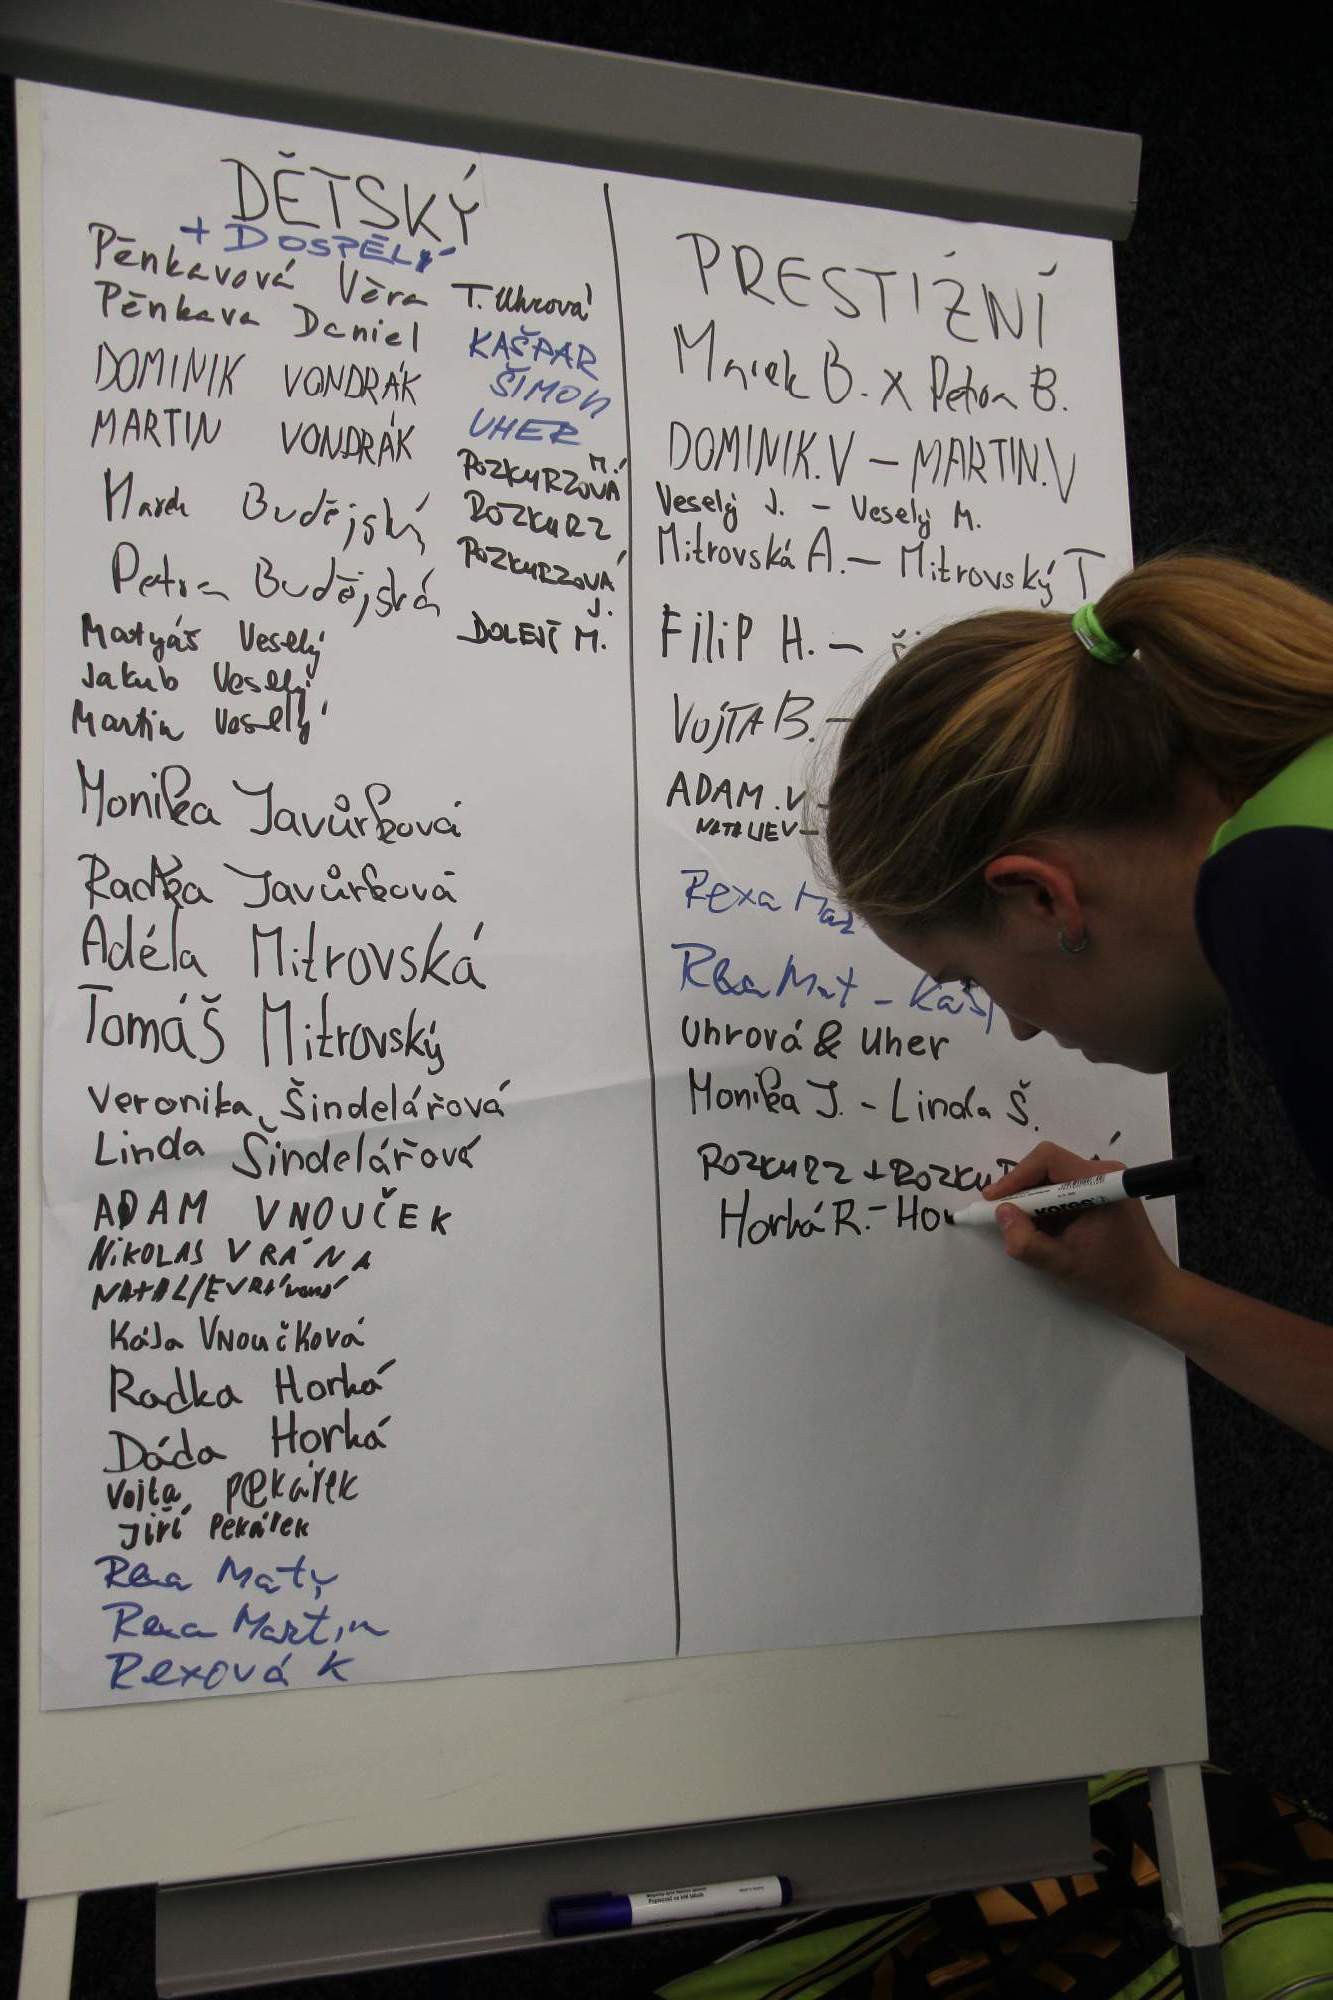 DĚTSKÝ
+ DOSPĚLÝ
Pěnkavová Věra
Pěnkava Daniel
DOMINIK VONDRÁK
MARTIN VONDRÁK
Marek Budějský
Petra Budějská
Matyáš Veselý
Jakub Veselý
Martin Veselý
Monika Javůrková
Radka Javůrková
Adéla Mitrovská
Tomáš Mitrovský
Veronika Šindelářová
Linda Šindelářová
ADAM VNOUČEK
NIKOLAS VRÁNA
NATALIE VRÁNOVÁ
Kája Vnoučková
Radka Horká
Dáda Horká
Vojta Pekárek
Jiří Pekárek
Rexa Maty
Rexa Martin
Rexová K
T. Uhrová
KAŠPAR
ŠIMON
UHER
ROZKURZOVÁ M.
ROZKURZ
ROZKURZOVÁ
J.
DOLEJŠÍ M.
PRESTIŽNÍ
Marek B. X Petra B.
DOMINIK.V – MARTIN.V
Veselý J. – Veselý M.
Mitrovská A. – Mitrovský T
FILIP H. –
VOJTA B. –
ADAM.V –
NATALIE V –
Rexa Mar
Rexa Mat – Kašp
Uhrová & Uher
Monika J. – Linda Š.
ROZKURZ + ROZKU
Horká R. – Ho